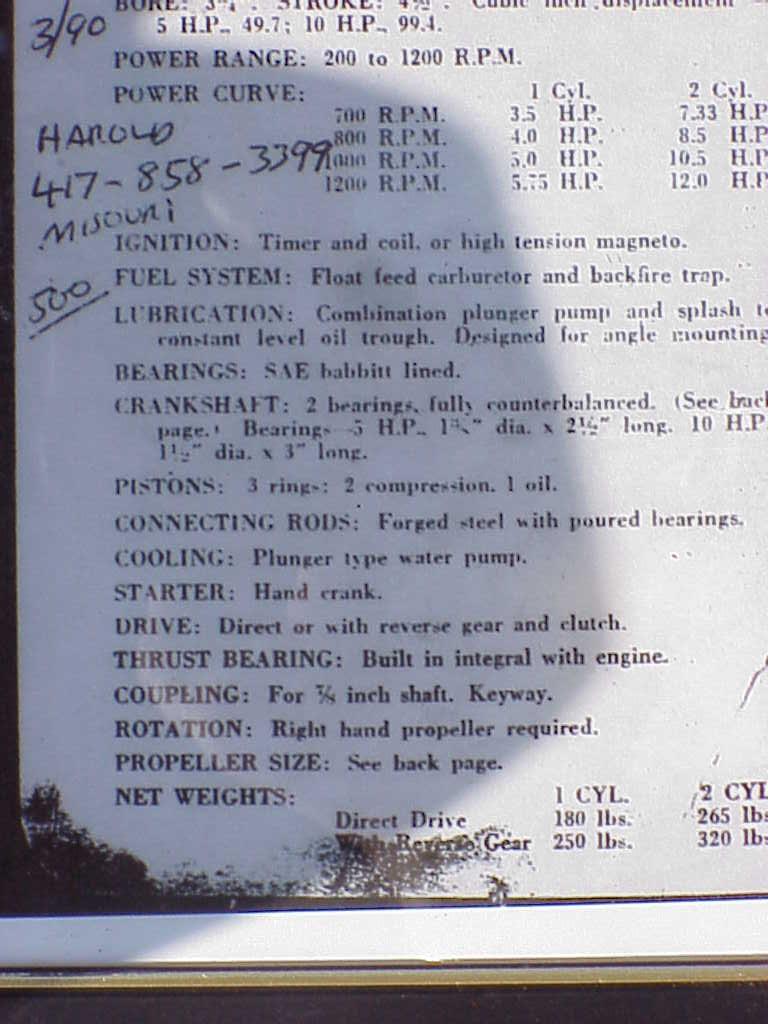 BORE: 3¾". STROKE: 4½". Cubic inch displacement
5 H.P., 49.7; 10 H.P., 99.4.
3/90
POWER RANGE: 200 to 1200 R.P.M.
POWER CURVE: 1 Cyl. 2 Cyl.
700 R.P.M. 3.5 H.P. 7.33 H.P
800 R.P.M. 4.0 H.P. 8.5 H.P
1000 R.P.M. 5.0 H.P. 10.5 H.P
1200 R.P.M. 5.75 H.P. 12.0 H.P
HAROLD
417-858-3399
MISOURI
500
IGNITION: Timer and coil, or high tension magneto.
FUEL SYSTEM: Float feed carburetor and backfire trap.
LUBRICATION: Combination plunger pump and splash t
constant level oil trough. Designed for angle mounting
BEARINGS: SAE babbitt lined.
CRANKSHAFT: 2 bearings, fully counterbalanced. (See back
page.) Bearings 5 H.P., dia. x 2½" long. 10 H.P
1½" dia. x 3" long.
PISTONS: 3 rings: 2 compression, 1 oil.
CONNECTING RODS: Forged steel with poured bearings.
COOLING: Plunger type water pump.
STARTER: Hand crank.
DRIVE: Direct or with reverse gear and clutch.
THRUST BEARING: Built in integral with engine.
COUPLING: For ⅞ inch shaft. Keyway.
ROTATION: Right hand propeller required.
PROPELLER SIZE: See back page.
NET WEIGHTS: 1 CYL. 2 CYL
Direct Drive 180 lbs. 265 lbs
With Reverse Gear 250 lbs. 320 lb